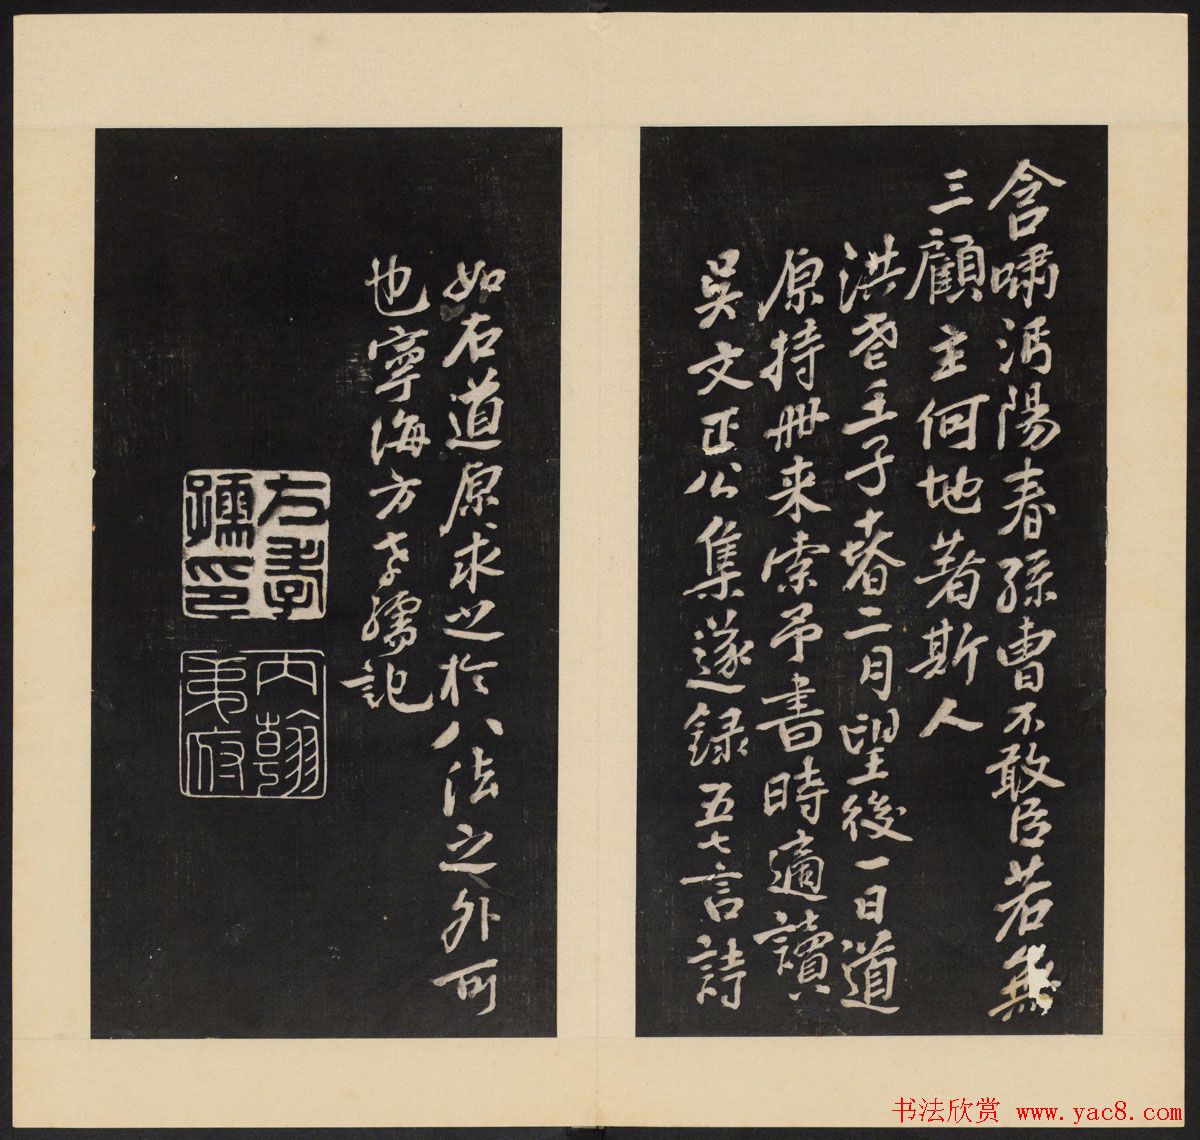 含嘯沔陽春孫曹不敢臣若無
三顧主何地著斯人
洪武壬子春二月望後一日道
原持冊来索予書時適讀
吳文正公集遂録五七言詩
如右道原求之於八法之外可
也寧海方孝孺記
方孝孺印
内翰
书法欣赏 www.yac8.com